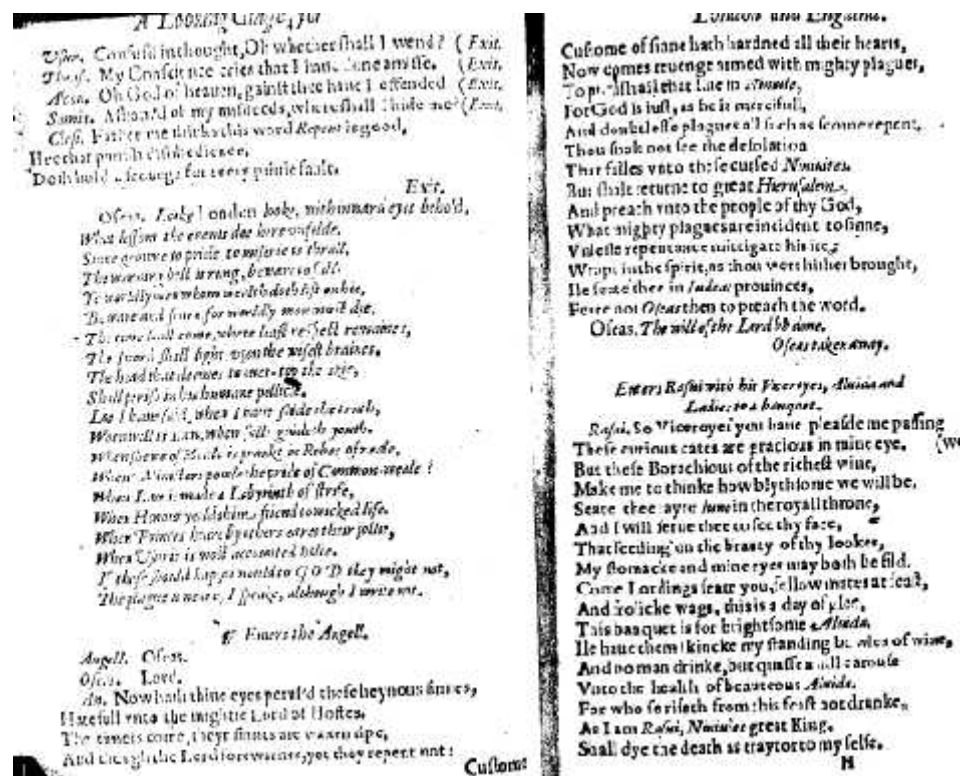 A Looking Glasse, for
Vsur. Confusd in thought, Oh whether shall I wend? (Exit.
My Conscience cries that I haue done amisse. (Exit.
Oh God of heauen, gainst thee haue I offended (Exit.
Asham'd of my misdeeds, where shall I hide me? (Exit.
Clesi. Father me thinks this word Repent is good,
Hee that punish disobedience,
Doth hold a scourge for euery priuie fault.
Exit.
Oseas. Looke London looke, with inward eyes behold,
What lessons the euents doe here vnfolde.
Sinne growne to pride, to miserie is thrall,
The warning bell is rung, beware to fall.
Ye worldly men whom wealth doth lift on hie,
Beware and feare, for worldly men must die.
The time shall come, where least respect remaines,
The sword shall light vpon the wisest braines.
The head that deemes to ouer-top the skie,
Shall perish in his humane pollicie.
Lo I haue said, when I haue said the truth,
When will is Law, when folly guideth youth.
When shew of Zeale is prankt in Robes of zeale,
When Ministers powle the pride of Common-weale?
When Law is made a Laborinth of strife,
When Honor yeelds him friend to wicked life.
When Princes heare by others eares their follie,
When Vsurie is most accounted holie.
If these should hap as would to GOD they might not,
The plague is neare, I speake, although I write not.
Enters the Angell.
Angell. Oseas.
Oseas. Lord.
An. Now hath thine eyes perus'd these heynous sinnes,
Hatefull vnto the mightie Lord of Hostes.
The time is come, theyr sinnes are waxen ripe,
And though the Lord forewarnes, yet they repent not:
Custome
London and England.
Custome of sinne hath hardned all their hearts,
Now comes reuenge armed with mighty plagues,
To punish all that liue in Niniuie,
For God is iust, as he is mercifull,
And doubtlesse plagues all such as scorne repent,
Thou shalt not see the desolation
That falles vnto these cursed Niniuites.
But shalt returne to great Hierusalem,
And preach vnto the people of thy God,
What mighty plagues are incident to sinne,
Vnlesse repentance mittigate his ire:
Wrapt in the spirit, as thou wert hither brought,
Ile seate thee in Iudeas prouinces,
Feare not Oseas then to preach the word.
Oseas. The will of the Lord be done.
Oseas taken away.
Enters Rasni with his Viceroyes, Aluida and
Ladies to a banquet.
Rasni. So Viceroyes you haue pleasde me passing
These curious cates are gracious in mine eye. (we
But these Borachious of the richest wine,
Make me to thinke how blythsome we will be.
Seate thee fayre Iuno in the royall throne,
And I will serue thee to see thy face,
That feeding on the beauty of thy lookes,
My stomacke and mine eyes may both be fild.
Come Lordings seate you, fellow mates at feast,
And frolicke wags, this is a day of glee,
This banquet is for brightsome Aluida.
Ile haue them skincke my standing bowles of wine,
And no man drinke, but quaffe a full carouse
Vnto the health of beauteous Aluida.
For who so riseth from this feast not drunke,
As I am Rasni, Niniuies great King.
Shall dye the death as traytor to my selfe.
H